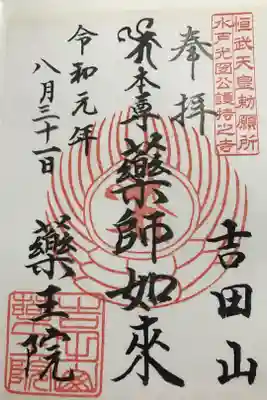 桓武天皇勅願所
水戸光圀公護持之寺
奉拝
吉田山
本尊
藥師如來
令和元年
八月三十一日
藥王院